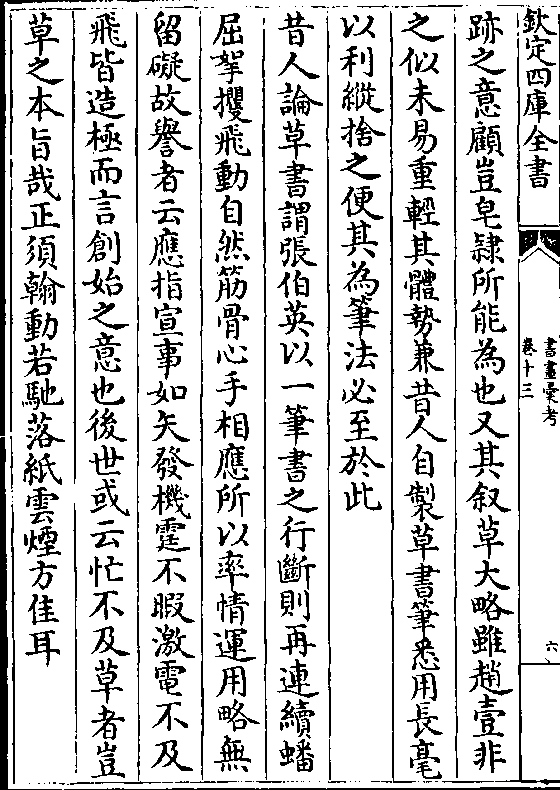 欽定四庫全書
書畫彙考
卷十三
六
跡之意顧豈皂隸所能為也又其叙草大略雖趙壹非
之似未易重輕其體勢兼昔人自製草書筆悉用長毫
以利縱捨之便其為筆法必至於此
昔人論草書謂張伯英以一筆書之行斷則再連續蟠
屈拏攫飛動自然筋骨心手相應所以率情運用略無
留礙故譽者云應指宣事如矢發機霆不暇激電不及
飛皆造極而言創始之意也後世或云忙不及草者豈
草之本旨哉正須翰動若馳落紙雲煙方佳耳